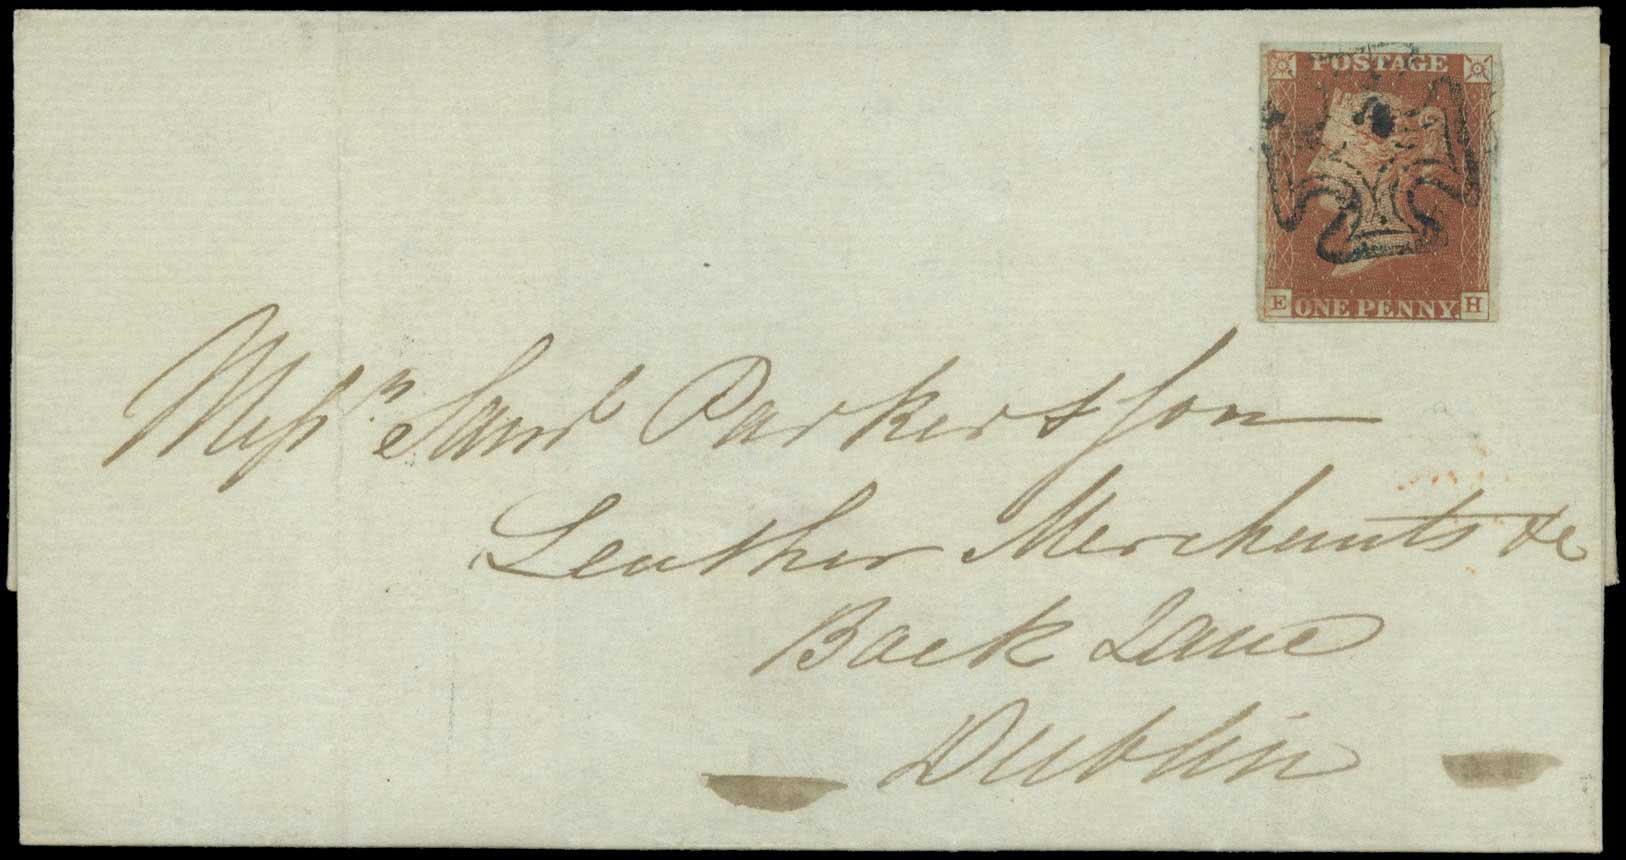 POSTAGE
E ONE PENNY. H
Messrs Saml Parker & Son
Leather Merchants &c
Back Lane
Dublin